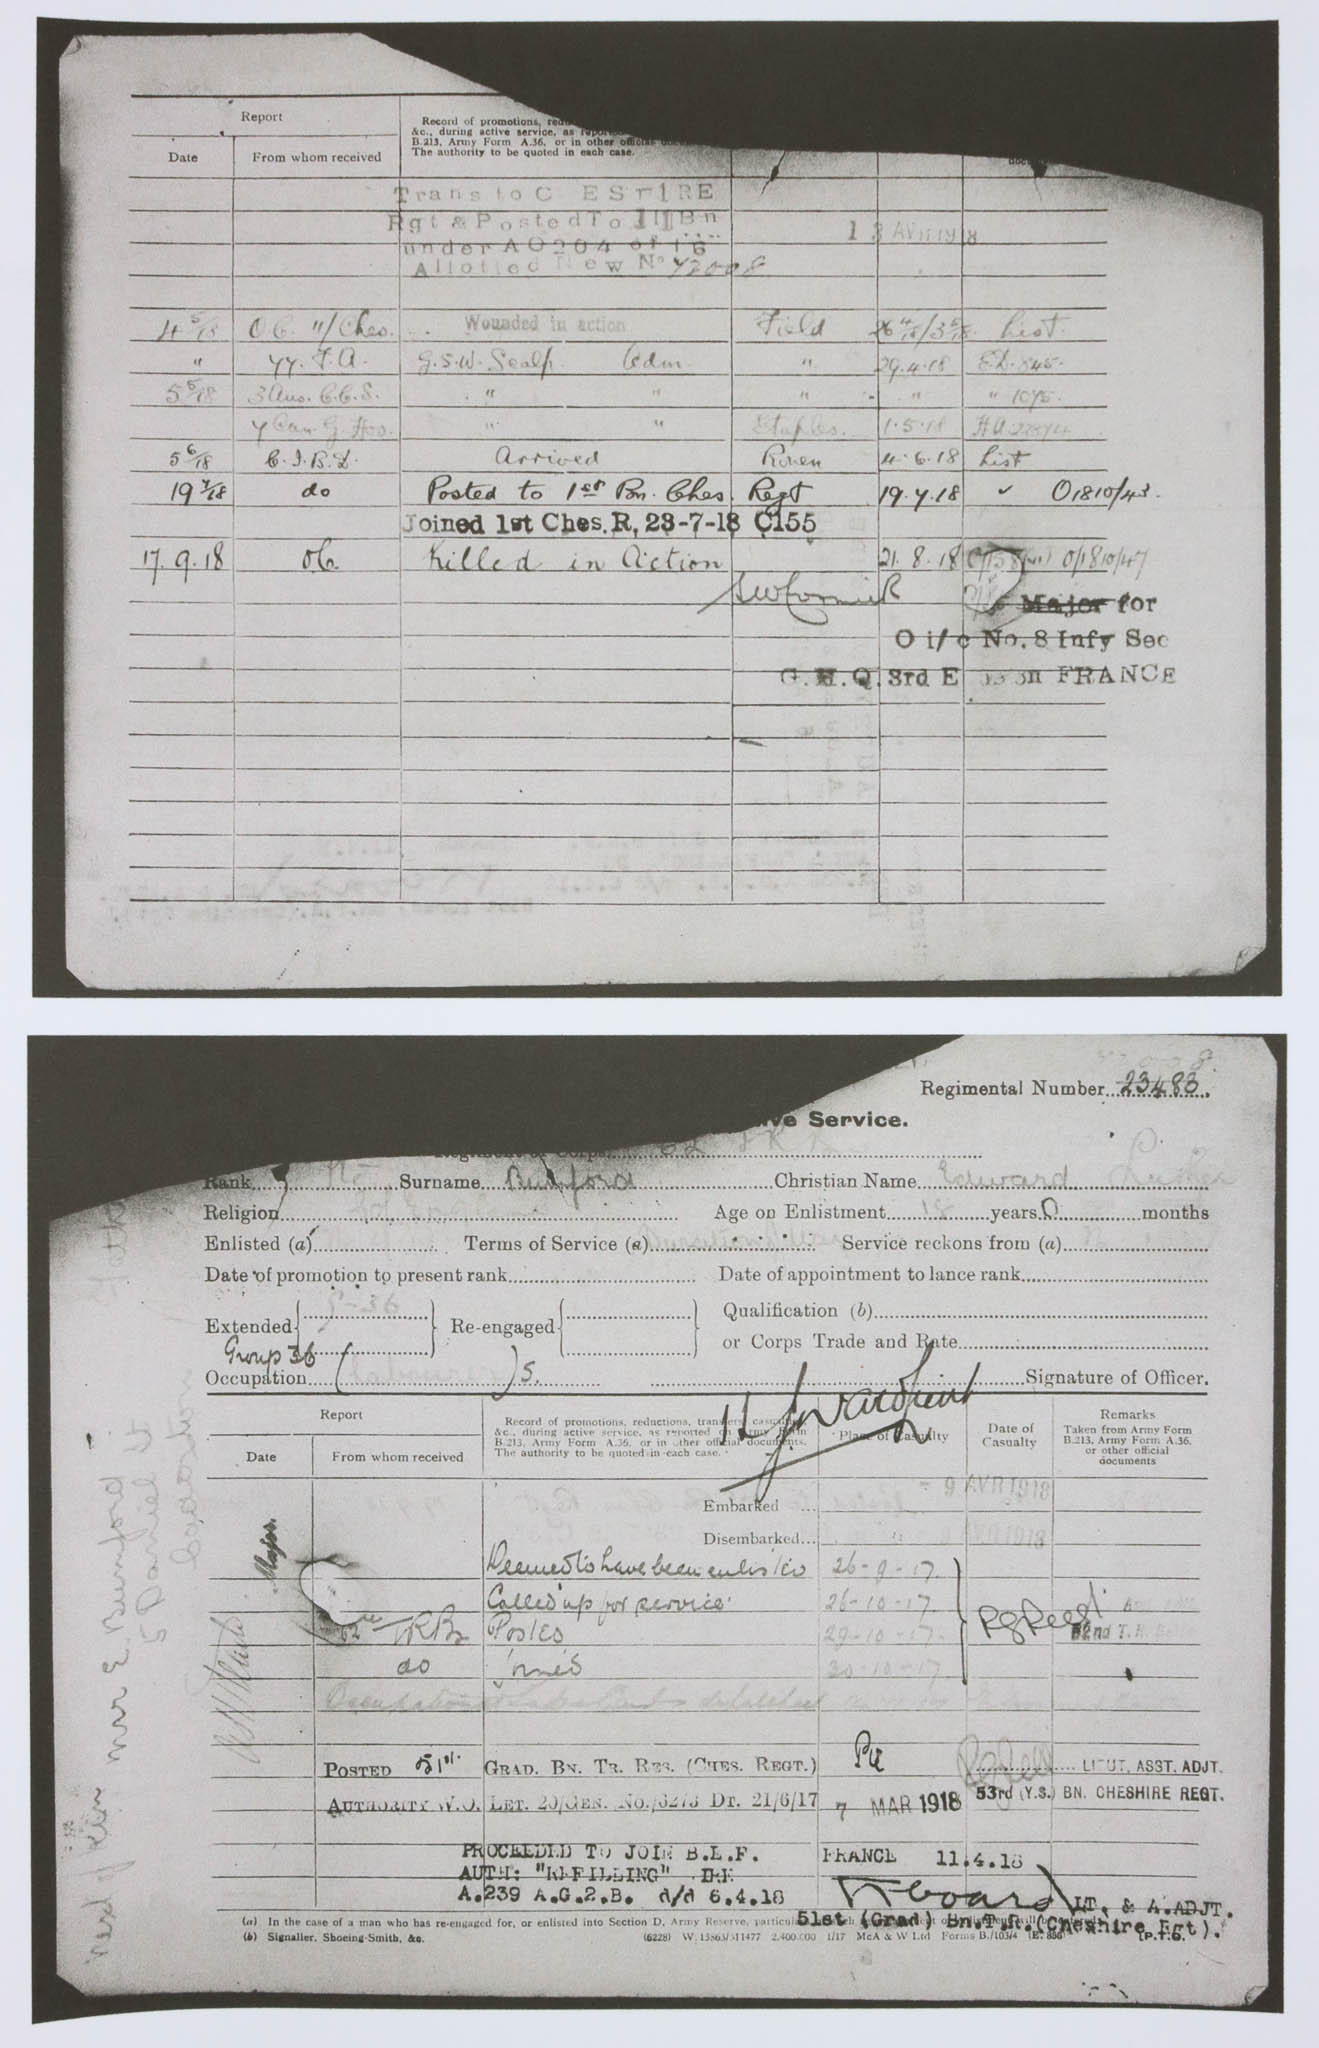 Report
Record of promotions,
&c., during active service, as
B.213, Army Form A.36, or in other official
The authority to be quoted in each case.
Date
From whom received
Trans to C
Rgt & Posted To 11 Bn
under AO 204 of 16
Allotted New No
1918
4 5/18 O.C. 11/Ches. Wounded in action Field 26 4/18/3 5/18 List.
" 77. F.A. G.S.W. Scalp. Adm. " 29.4.18
5 5/18 3 Aus. C.C.S. " " " "
7 Can. G. Hos. " " Etaples. 1.5.18
5 6/18 C.I.B.D. Arrived Rouen 4.6.18 List
19 7/18 do Posted to 1st Bn. Ches. Regt 19.7.18 ✓ O1810/43.
Joined 1st Ches.R, 23-7-18 C155
17.9.18 OC. Killed in Action 21.8.18 O/1810/47
Major for
O i/c No. 8 Infy Sec
G.H.Q. 3rd E FRANCE
Regimental Number 23483.
Service.
Rank Surname Bumford Christian Name Edward
Religion Age on Enlistment 18 years 0 months
Enlisted (a) Terms of Service (a) Service reckons from (a)
Date of promotion to present rank Date of appointment to lance rank
Extended Re-engaged Qualification (b)
or Corps Trade and Rate
Group 36
Occupation Signature of Officer.
Report
Date
From whom received
Record of promotions, reductions, transfers, casualties,
&c., during active service, as reported on Army Form
B.213, Army Form A.36, or in other official documents.
The authority to be quoted in each case.
Place of Casualty
Date of
Casualty
Remarks
Taken from Army Form
B.213, Army Form A.36,
or other official
documents
Embarked ... 9 AVR 1918
Disembarked... AVR 1918
Major.
Deemed to have been enlisted 26-9-17.
Called up for service 26-10-17.
Posted 29-10-17.
do 30-10-17.
52nd
POSTED 51st. GRAD. BN. TR. RES. (CHES. REGT.) Pte
LIEUT. ASST. ADJT.
AUTHORITY W.O. LET. 20/GEN. NO./6273 DT. 21/6/17 7 MAR 1918 53rd (Y.S.) BN. CHESHIRE REGT.
PROCEEDED TO JOIN B.E.F. FRANCE 11.4.18
AUTH: "REFILLING"
A.239 A.G.2.B. d/d 6.4.18
LT. & A.ADJT.
51st (Grad) Bn.T.R.(Cheshire Rgt).
(a) In the case of a man who has re-engaged for, or enlisted into Section D, Army Reserve,
(b) Signaller, Shoeing-Smith, &c. 2.400.000 1/17 McA & W Ltd Forms B./103/4 (P.T.O.
next of kin Mrs E Bumford
5 Daniel St